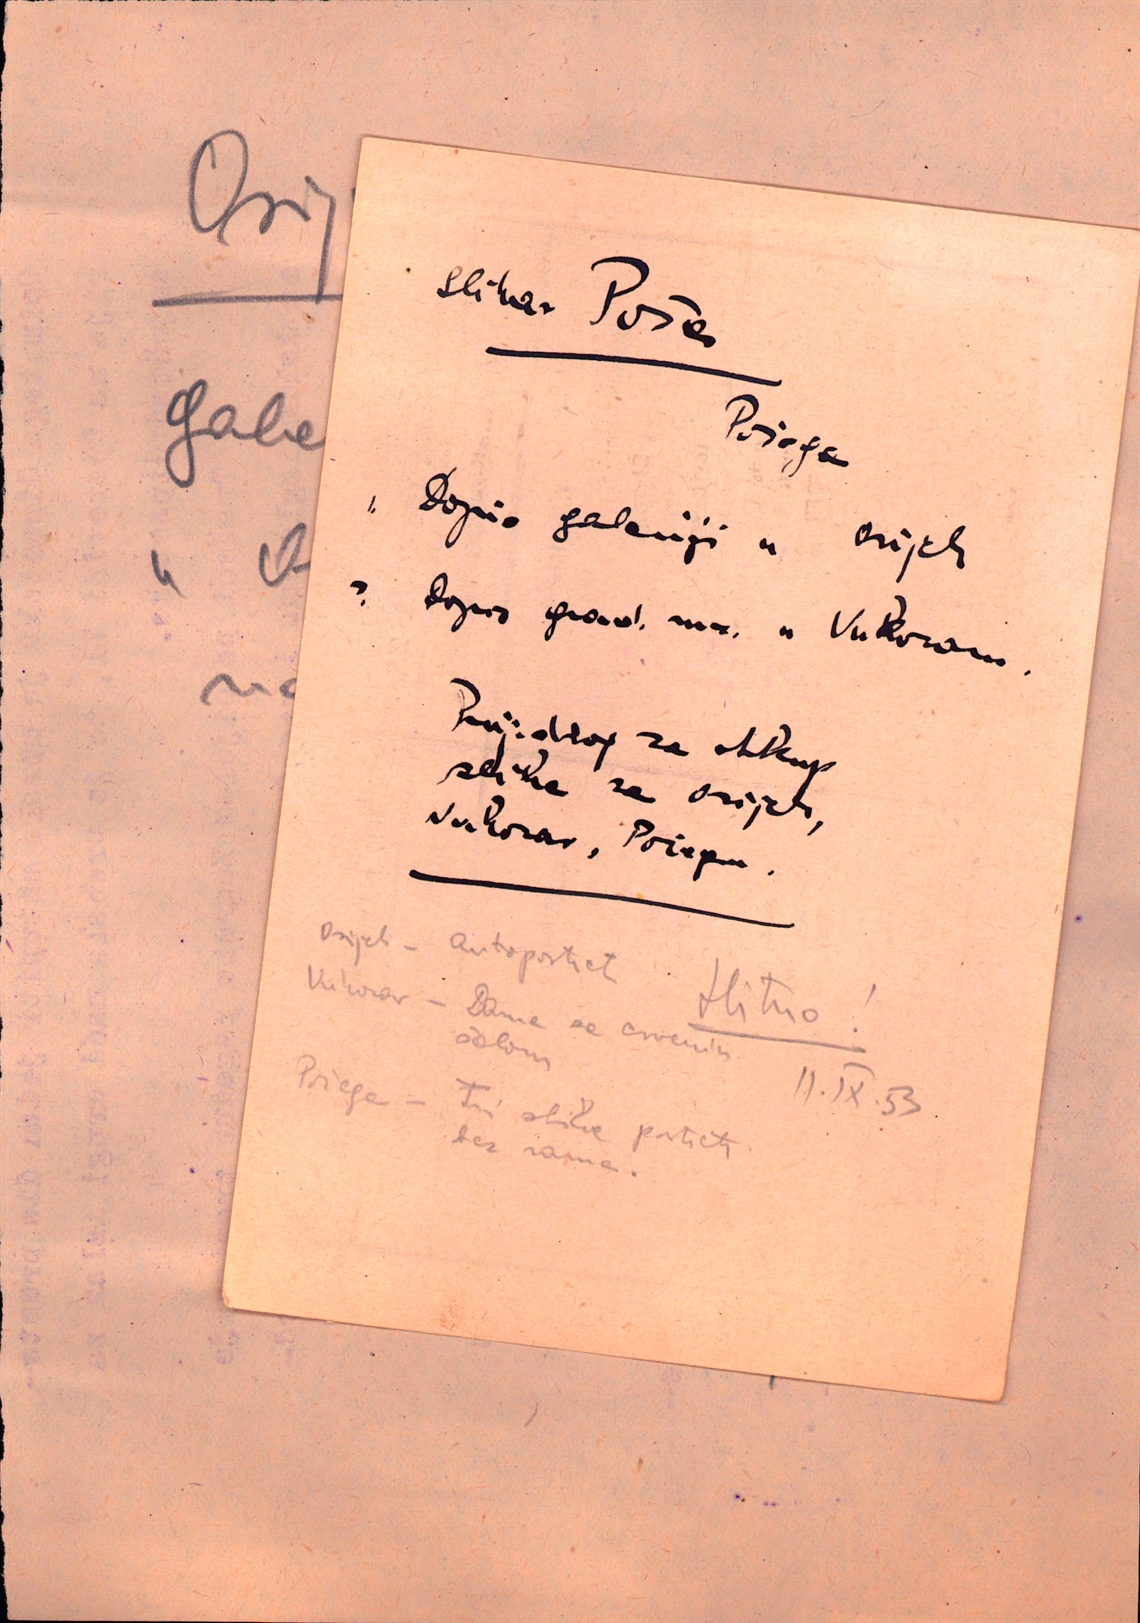 Osij
gale
u O
na
slikar Poša
Požega
1. Dopis galeriji u Osijek
2. Dopis grad. muz. u Vukovaru.
Prijedlog za otkup
slika za Osijek,
Vukovar, Požegu.
Osijek – Autoportret
Hitno!
Vukovar – Dama sa crvenim
šalom
11.IX.53
Požega – Tri slike portreti
bez rama.